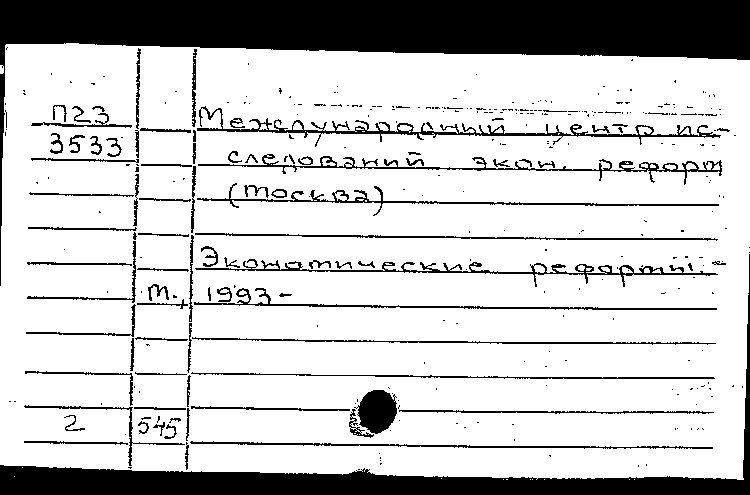 П23
3533
Международный центр ис-
следований экон. реформ
(Москва)
Экономические реформы.-
М., 1993-
2 545